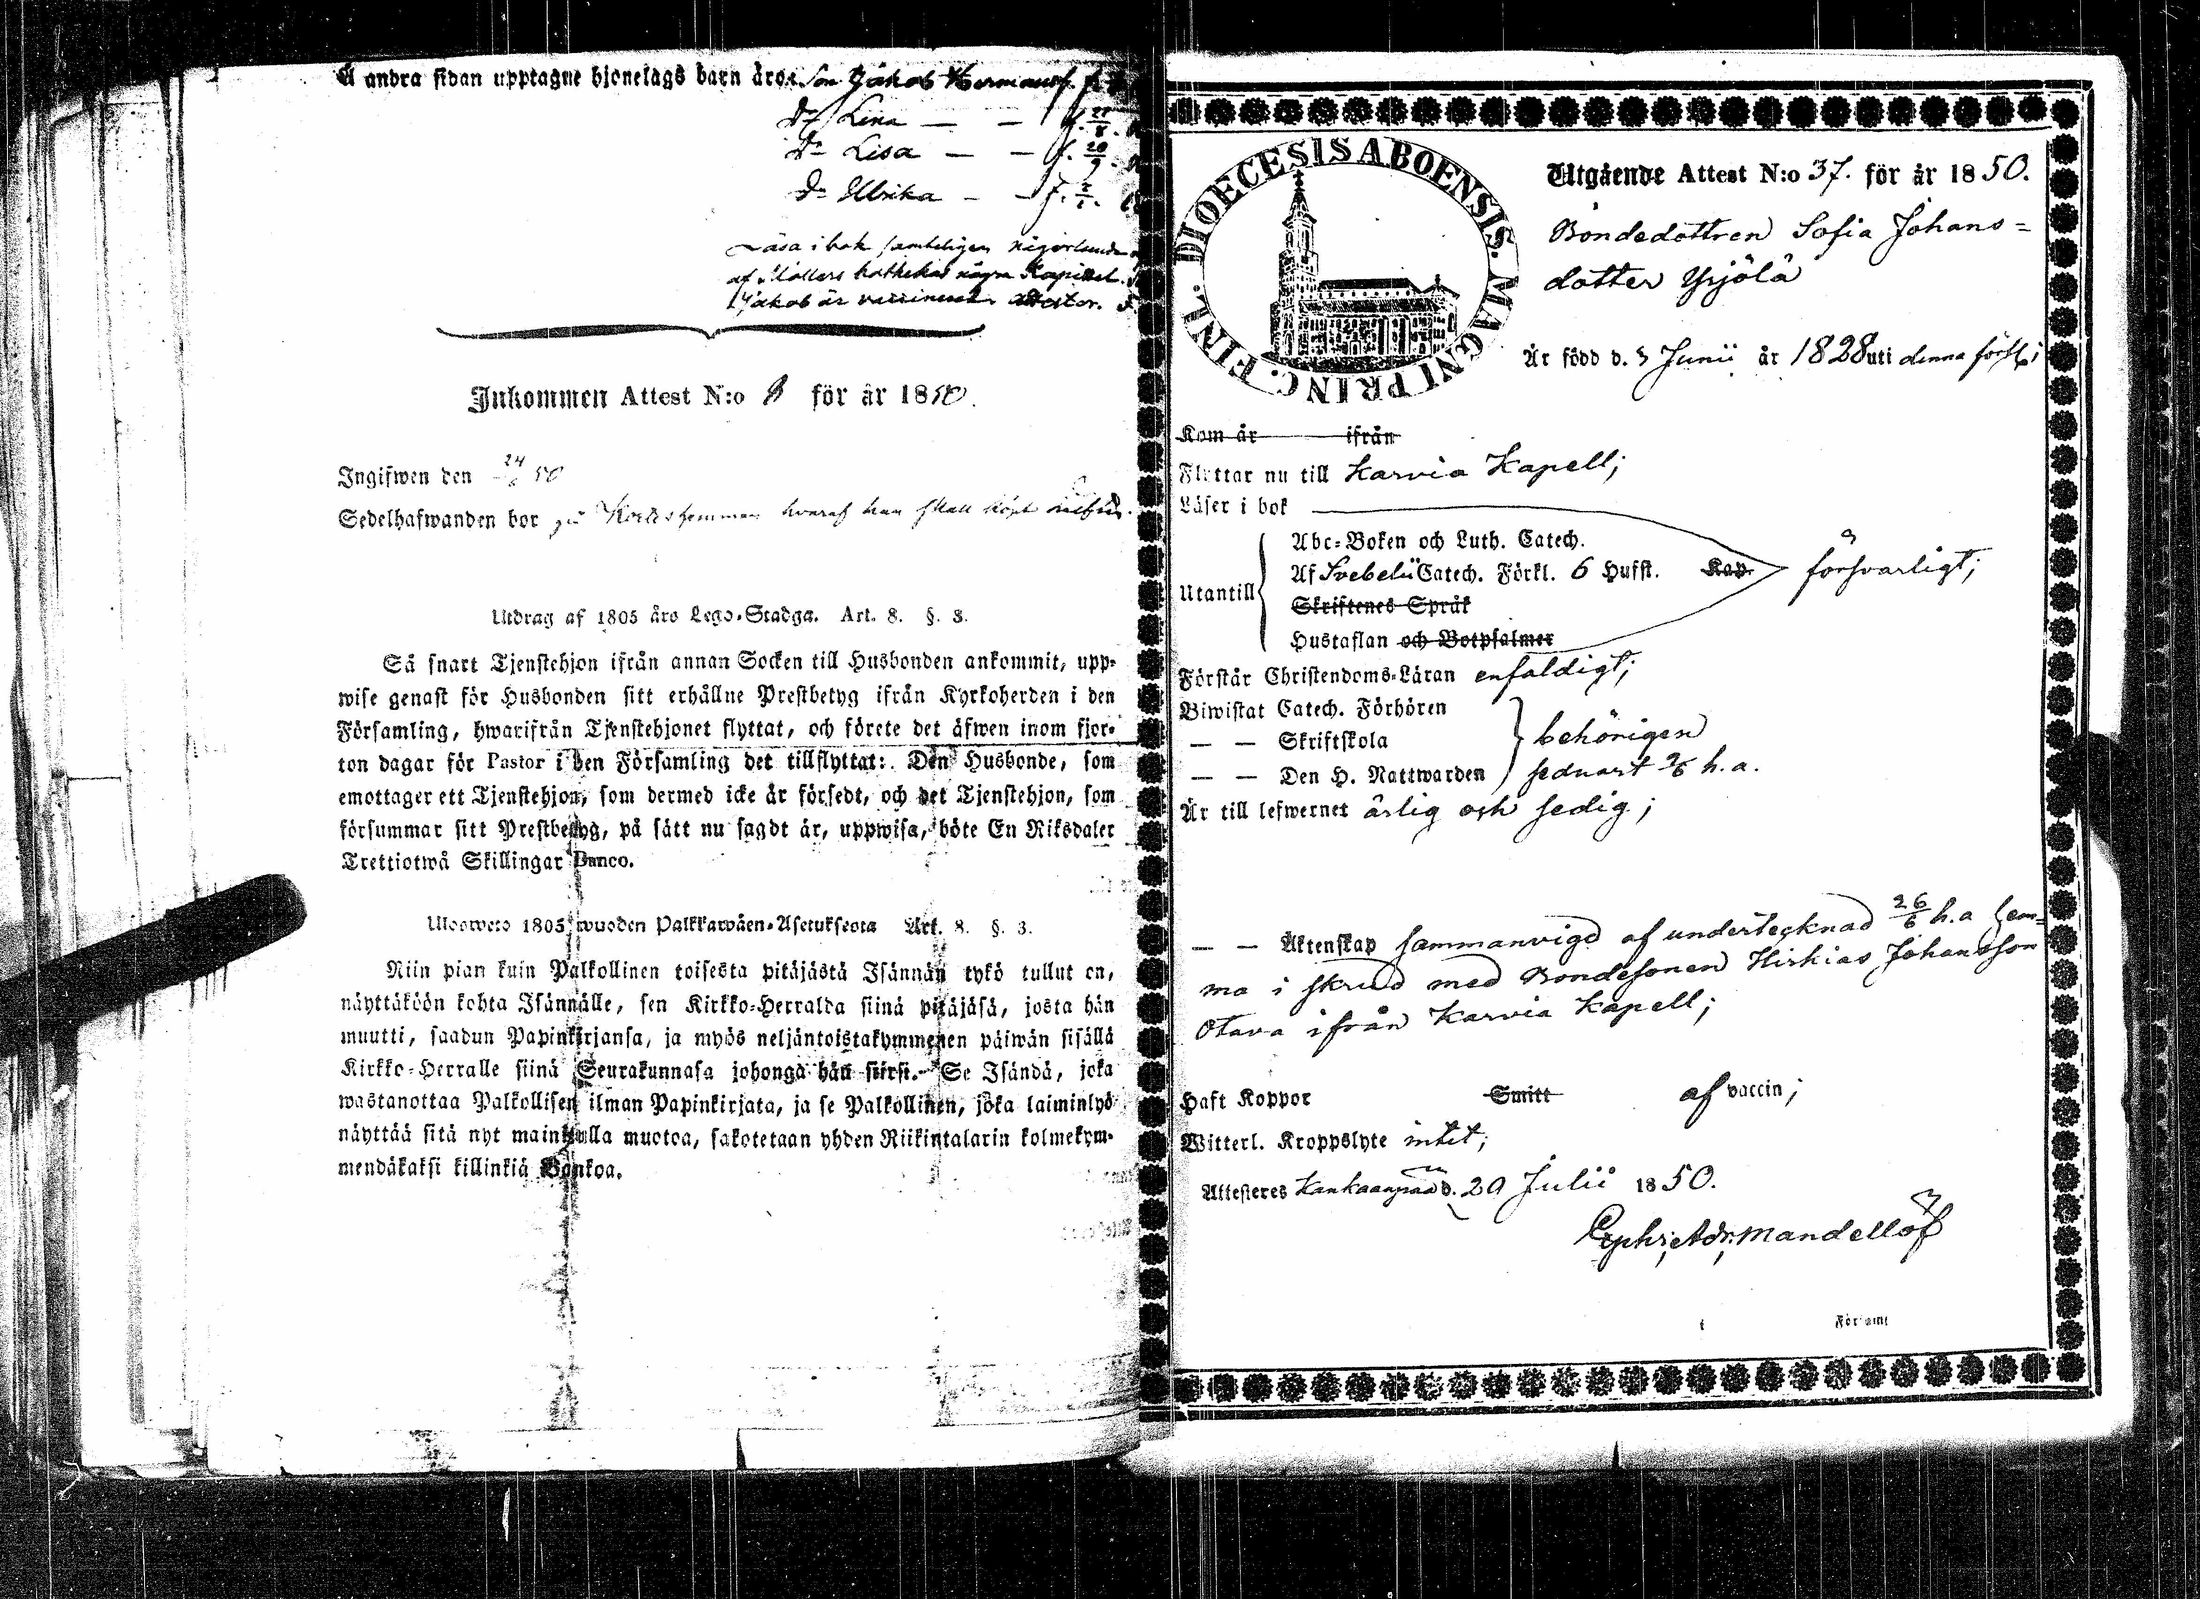 å andra sidan upptagne hjonelags barn äro: Son Jakob Hermansf. f.
Dr Lena — — f. 25/8.
Dr Lisa — — f. 20/9.
Dr Ulrika — — f.
Läsa i bok samteligen
af kathekes några Kapitel.
Jakob är vaccinerad
Inkommen Attest N:o 8 för år 1850.
Ingifwen den 24/6 50
Sedelhafwanden bor på hemman hvaraf han skall köpt
Utdrag af 1805 års Lego-Stadga. Art. 8. §. 3.
Så snart Tjenstehjon ifrån annan Socken till Husbonden ankommit, upp-
wise genast för Husbonden sitt erhållne Prestbetyg ifrån Kyrkoherden i den
Församling, hwarifrån Tjenstehjonet flyttat, och förete det äfwen inom fjor-
ton dagar för Pastor i den Församling det tillflyttat: Den Husbonde, som
emottager ett Tjenstehjon, som dermed icke är försedt, och det Tjenstehjon, som
försummar sitt Prestbetyg, på sätt nu sagdt är, uppwisa, böte En Riksdaler
Trettiotwå Skillingar Banco.
Ulosweto 1805 wuoden Palkkawäen-Asetuksesta Art. 8. §. 3.
Niin pian kuin Palkollinen toisesta pitäjästä Isännän tykö tullut on,
näyttäköön kohta Isännälle, sen Kirkko-Herralda siinä pitäjäsä, josta hän
muutti, saadun Papinkirjansa, ja myös neljäntoistakymmenen päiwän sisällä
Kirkko-Herralle siinä Seurakunnasa johonga hän siirsi. Se Isändä, joka
wastanottaa Palkollisen ilman Papinkirjata, ja se Palkollinen, joka laiminlyö
näyttää sitä nyt mainitulla muotoa, sakotetaan yhden Riikintalarin kolmekym-
mendäkaksi killinkiä Bankoa.
DIOECESIS ABOENSIS. MAGNI PRINC. FINL.
Utgående Attest N:o 37. för år 1850.
Bondedottren Sofia Johans=
dotter Yrjölä
Är född d. 3 Junii år 1828 uti denna förs:l;
Kom år ifrån
Flyttar nu till Karvia Kapell;
Läser i bok
Abc-Boken och Luth. Catech.
Utantill Af Svebelii Catech. Förkl. 6 Hufst. Kap. försvarligt;
Skriftenes Språk
Hustaflan och Botpsalmer
Förstår Christendoms-Läran enfaldigt;
Biwistat Catech. Förhören
— — Skriftskola behörigen
— — Den H. Nattwarden sednast 9/6 h. a.
Är till lefwernet ärlig och sedig;
— — Äktenskap sammanvigd af undertecknad 26/6 h. a hem-
ma i skrud med Bondesonen Hiskias Johansson
Otava ifrån Karvia Kapell;
Haft Koppor Smitt af vaccin;
Witterl. Kroppslyte intet;
Attesteres Kankaanpää d. 20 Julii 1850.
Ephr; Adr; Mandellöf